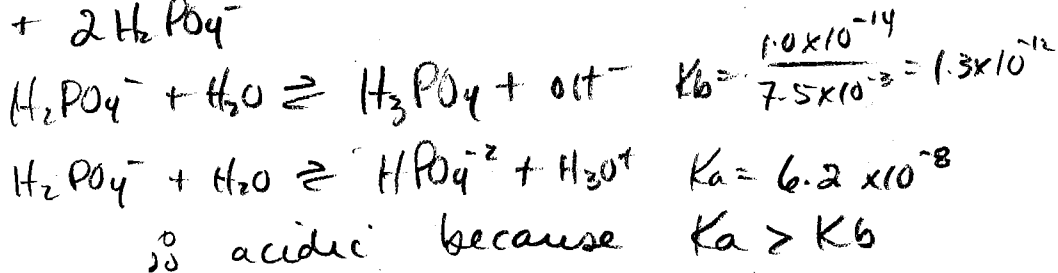 + 2 H₂PO₄⁻
H₂PO₄⁻ + H₂O ⇌ H₃PO₄ + OH⁻ Kb = 1.0x10⁻¹⁴ / 7.5x10⁻³ = 1.3x10⁻¹²
H₂PO₄⁻ + H₂O ⇌ HPO₄⁻² + H₃O⁺ Ka = 6.2 x10⁻⁸
∴ acidic because Ka > Kb